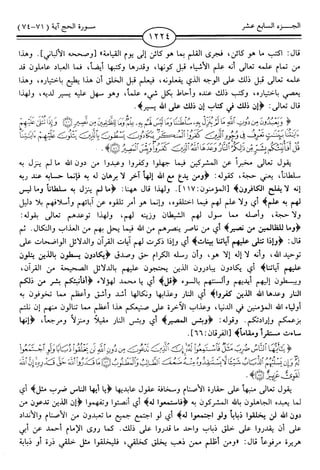 الجـــزء السابع عشر
١٢٢٤
سورة الحج آية (٧١-٧٤)
قال: اكتب ما هو كائن، فجرى القلم بما هو كائن إلى يوم القيامة» [وصححه الألباني]. وهذا
من تمام علمه تعالى أنه علم الأشياء قبل كونها، وقدرها وكتبها أيضاً، فما العباد عاملون قد
علمه تعالى قبل ذلك على الوجه الذي يفعلونه، فيعلم قبل الخلق أن هذا يطيع باختياره، وهذا
يعصي باختياره، وكتب ذلك عنده وأحاط بكل شيء علماً، وهو سهل عليه يسير لديه، ولهذا
قال تعالى: ﴿إن ذلك في كتاب إن ذلك على الله يسير﴾.
﴿ وَيَعْبُدُونَ مِن دُونِ اللَّهِ مَا لَمْ يُنَزِّلْ بِهِ سُلْطَانًا وَمَا لَيْسَ لَهُم بِهِ عِلْمٌ وَمَا لِلظَّالِمِينَ مِن نَّصِيرٍ ۝ وَإِذَا تُتْلَى عَلَيْهِمْ
آيَاتُنَا بَيِّنَاتٍ تَعْرِفُ فِي وُجُوهِ الَّذِينَ كَفَرُوا الْمُنكَرَ يَكَادُونَ يَسْطُونَ بِالَّذِينَ يَتْلُونَ عَلَيْهِمْ آيَاتِنَا
قُلْ أَفَأُنَبِّئُكُم بِشَرٍّ مِّن ذَلِكُمُ النَّارُ وَعَدَهَا اللَّهُ الَّذِينَ كَفَرُوا وَبِئْسَ الْمَصِيرُ ۝ ﴾
يقول تعالى مخبراً عن المشركين فيما جهلوا وكفروا وعبدوا من دون الله ما لم ينزل به
سلطاناً، يعني حجة، كقوله: ﴿ومن يدع مع الله إلهاً آخر لا برهان له به فإنما حسابه عند ربه
إنه لا يفلح الكافرون﴾ [المؤمنون: ١١٧]. ولهذا قال ههنا: ﴿ما لم ينزل به سلطاناً وما ليس
لهم به علم﴾ أي ولا علم لهم فيما اختلقوه، وإنما هو أمر تلقوه عن آبائهم وأسلافهم بلا دليل
ولا حجة، وأصله مما سول لهم الشيطان وزينه لهم، ولهذا توعدهم تعالى بقوله:
﴿وما للظالمين من نصير﴾ أي من ناصر ينصرهم من الله فيما يحل بهم من العذاب والنكال. ثم
قال: ﴿وإذا تتلى عليهم آياتنا بينات﴾ أي وإذا ذكرت لهم آيات القرآن والدلائل الواضحات على
توحيد الله، وأنه لا إله إلا هو، وأن رسله الكرام حق وصدق ﴿يكادون يسطون بالذين يتلون
عليهم آياتنا﴾ أي يكادون يبادرون الذين يحتجون عليهم بالدلائل الصحيحة من القرآن،
ويبسطون إليهم أيديهم وألسنتهم بالسوء ﴿قل﴾ أي يا محمد لهؤلاء ﴿أفأنبئكم بشر من ذلكم
النار وعدها الله الذين كفروا﴾ أي النار وعذابها ونكالها أشد وأشق وأعظم مما تخوفون به
أولياء الله المؤمنين في الدنيا، وعذاب الآخرة على صنيعكم هذا أعظم مما تنالون منهم إن نلتم
بزعمكم وإرادتكم. وقوله: ﴿وبئس المصير﴾ أي وبئس النار مقيلاً ومنزلاً ومرجعاً، ﴿إنها
ساءت مستقراً ومقاماً﴾ [الفرقان: ٦٦].
﴿ يَا أَيُّهَا النَّاسُ ضُرِبَ مَثَلٌ فَاسْتَمِعُوا لَهُ إِنَّ الَّذِينَ تَدْعُونَ مِن دُونِ اللَّهِ لَن يَخْلُقُوا ذُبَابًا وَلَوِ اجْتَمَعُوا لَهُ
يقول تعالى منبهاً على حقارة الأصنام وسخافة عقول عابديها ﴿يا أيها الناس ضرب مثل﴾ أي
لما يعبده الجاهلون بالله المشركون به ﴿فاستمعوا له﴾ أي أنصتوا وتفهموا ﴿إن الذين تدعون من
دون الله لن يخلقوا ذباباً ولو اجتمعوا له﴾ أي لو اجتمع جميع ما تعبدون من الأصنام والأنداد
على أن يقدروا على خلق ذباب واحد ما قدروا على ذلك. كما روى الإمام أحمد عن أبي
هريرة مرفوعاً قال: «ومن أظلم ممن ذهب يخلق كخلقي، فليخلقوا مثل خلقي ذرة أو ذبابة